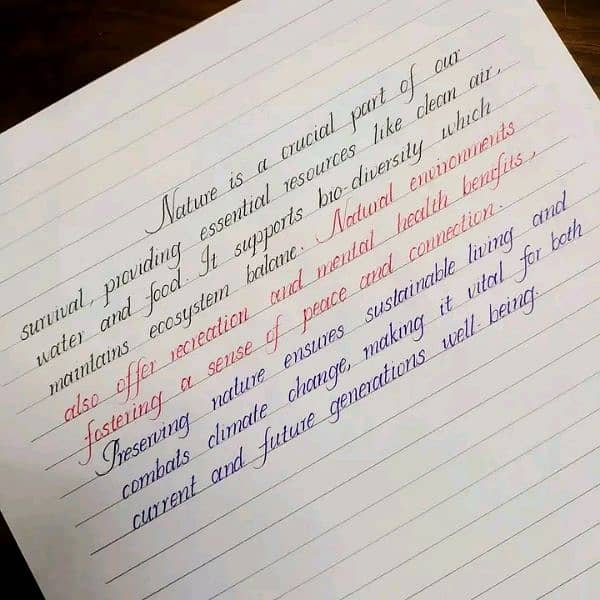 Nature is a crucial part of our
survival, providing essential resources like clean air,
water and food. It supports bio-diversity which
maintains ecosystem balane. Natural environments
also offer recreation and mental health benefits,
fostering a sense of peace and connection.
Preserving nature ensures sustainable living and
combats climate change, making it vital for both
current and future generations well-being.